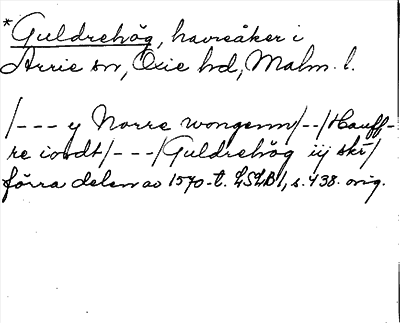 *Guldrehög, havreåker i
Arrie sn, Oxie hd, Malm. l.
/--- y Norre wongenn/--/Hauff-
re iordt/---/Guldrehög iij ski/
förra delen av 1570-t. LSLB 1, s. 438. orig.